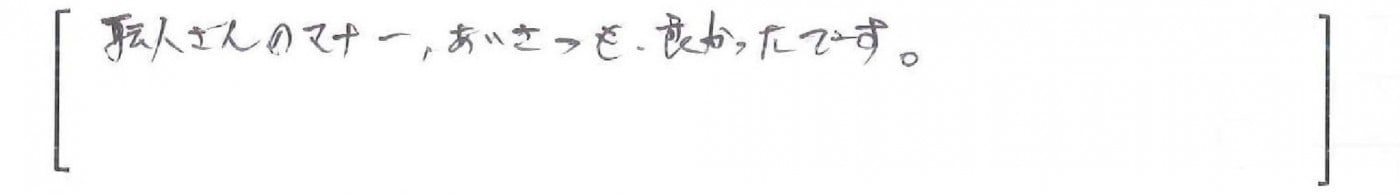 職人さんのマナー、あいさつも、良かったです。